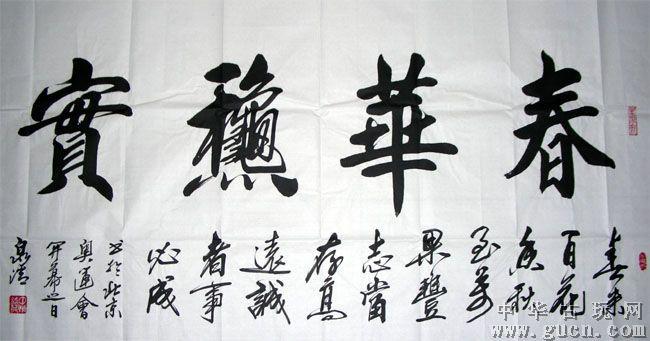 春華龝實
春来
百花
香秋
至萬
果豐
志當
存高
遠誠
者事
必成
书於北京
奥運會
开幕之日
泉清
中华古玩网
www.gucn.com